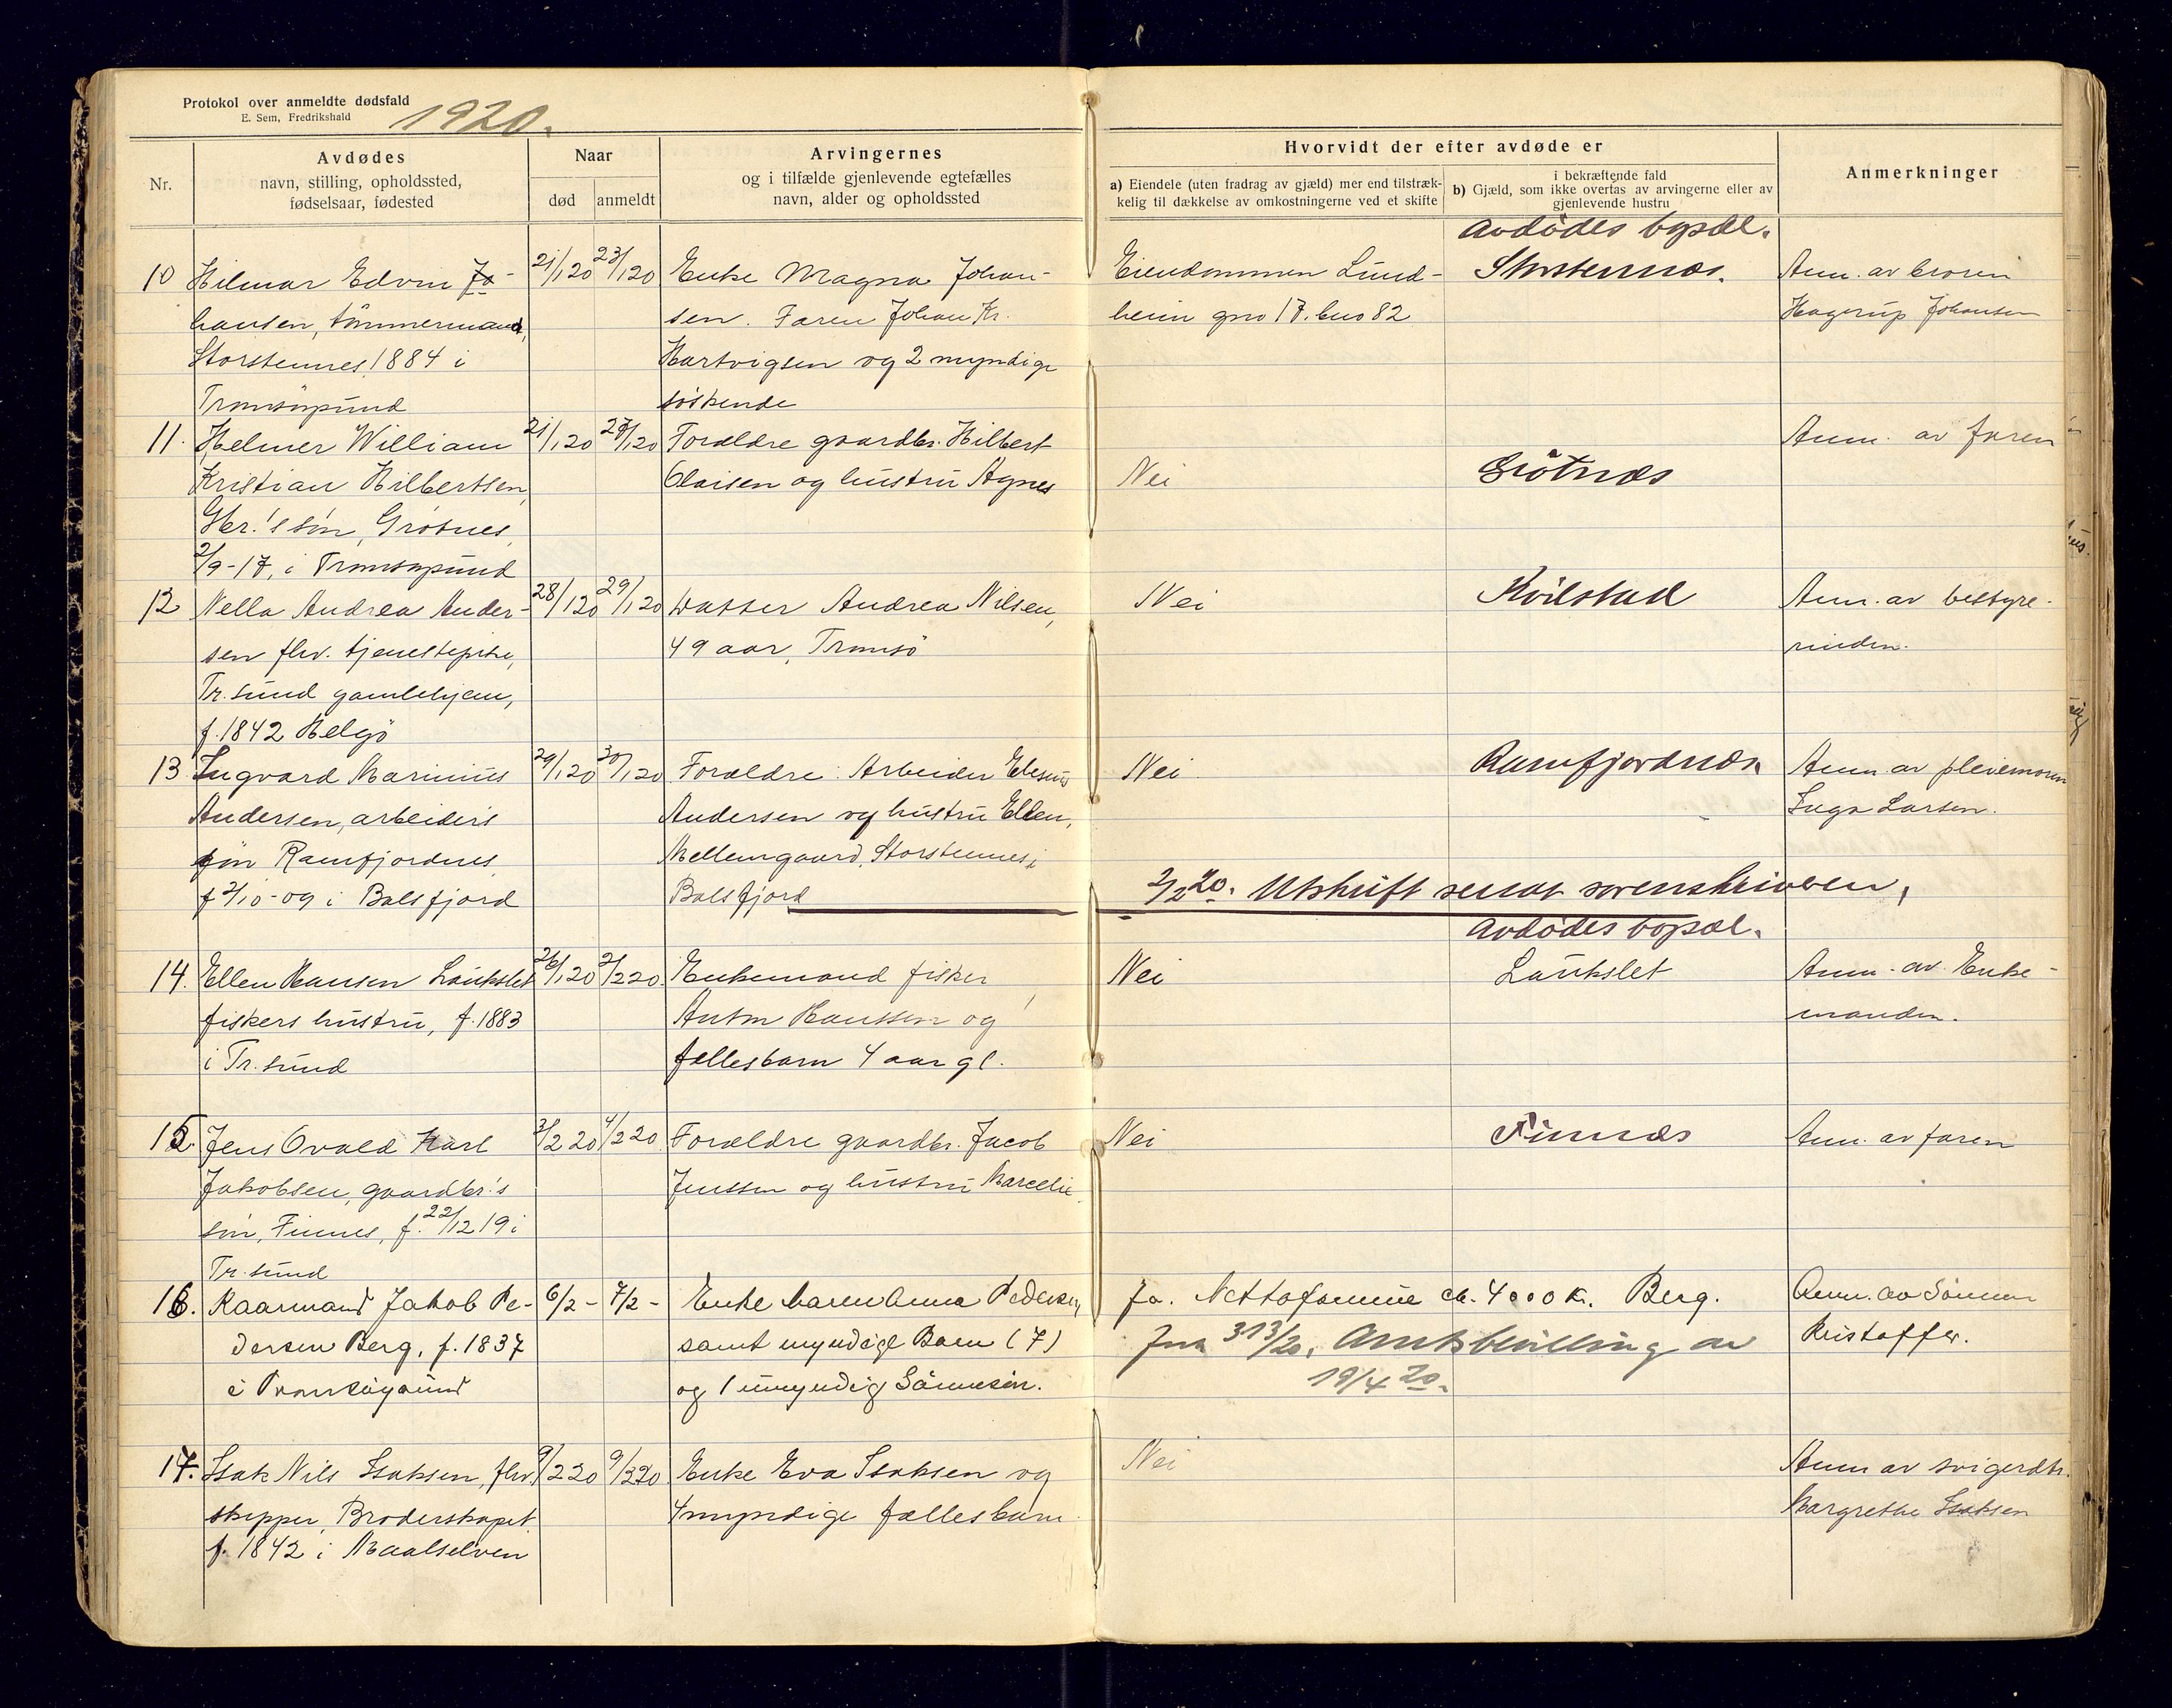 Protokol over anmeldte dødsfald
E. Sem, Fredrikshald
1920.
Nr.
Avdødes
navn, stilling, opholdssted,
fødselsaar, fødested
Naar
død
anmeldt
Arvingernes
og i tilfælde gjenlevende egtefælles
navn, alder og opholdssted
Hvorvidt der efter avdøde er
a) Eiendele (uten fradrag av gjæld) mer end tilstræk-
kelig til dækkelse av omkostningerne ved et skifte
i bekræftende fald
b) Gjæld, som ikke overtas av arvingerne eller av
gjenlevende hustru
Anmerkninger
Avdödes bopæl.
10
Hilmar Edvin Jo-
hansen, tömmermand,
Storstennes, 1884 i
Tromsöysund
21/1 20
23/1 20
Enke Magna Johan-
sen. Faren Johan Kr.
Hartvigsen og 2 myndige
söskende
Eiendommen Lund-
heim gno 17. bno 82
Storstennæs.
Anm. av broren
Hagerup Johansen
11.
Helmer William
Kristian Hilbertsen,
Gbr.'s sön, Grötnes,
2/9-17, i Tromsöysund
21/1 20
27/1 20
Forældre gaardbr. Hilbert
Olaisen og hustru Agnes
Nei
Grötnæs
Anm. av faren
12
Nella Andrea Ander-
sen fhv. tjenestepike,
Tr. sund gamlehjem,
f. 1842 Helgö
28/1 20
29/1 20
Datter Andrea Nilsen,
49 aar, Tromsö
Nei
Kvilstad
Anm. av bestyre-
rinden.
13
Ingvard Marinius
Andersen, arbeiders
sön Ramfjordnes,
f 2/10-09 i Balsfjord
29/1 20
30/1 20
Forældre: Arbeider Elesius
Andersen og hustru Ellen,
Mellemgaard, Storstennes i
Balsfjord
Nei
Ramfjordnæs.
Anm. av pleiemoren
Inga Larsen.
2/2 20. Utskrift sendt sorenskriveren.
Avdödes bopæl.
14.
Ellen Hansen Laukslet
fiskers hustru, f. 1883
i Tr. sund
26/1 20
2/2 20
Enkemand fisker
Anton Hanssen og
fællesbarn 4 aar gl.
Nei
Laukslet
Anm. av Enke-
manden.
15.
Jens Ovald Karl
Jakobsen, gaardbr.'s
sön, Finnes, f. 22/12 19 i
Tr. sund
3/2 20
4/2 20
Forældre gaardbr. Jacob
Jenssen og hustru Marcelie
Nei
Finnæs
Anm. av faren
16.
Kaarmand Jakob Pe-
dersen Berg, f. 1837
i Tromsöysund
6/2 -
7/2 -
Enke Karen Anna Pedersen,
samt myndige Barn (7)
og 1 umyndig Sönnesön.
Ja. Nettoformue ca. 4000 K. Berg.
Jnr 313/20. Amtsbevilling av
19/4 20.
Anm. av Sönnen
Kristoffer.
17.
Isak Nils Isaksen, fhv.
skipper, Broderskapet
f. 1842 i Maalselven
9/2 20
9/2 20
Enke Eva Isaksen og
4 myndige fællesbarn
Nei
Anm av svigerdtr.
Margrethe Isaksen